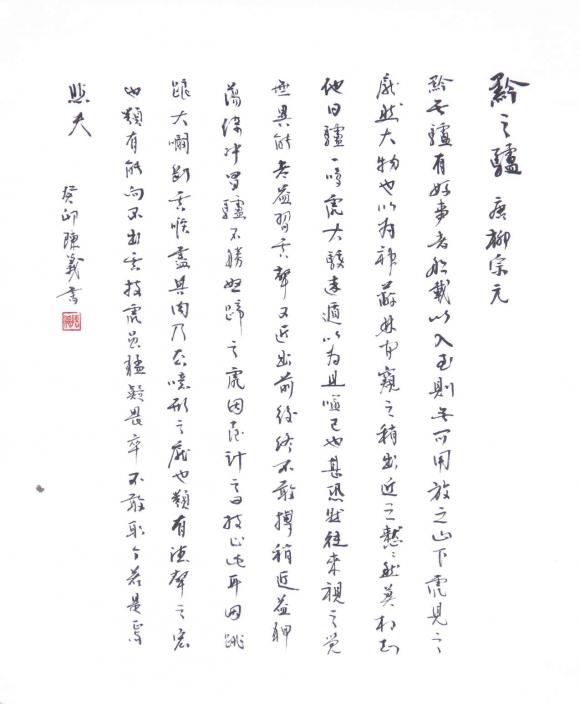 黔之驢 唐柳宗元
黔无驢有好事者船載以入至則无可用放之山下虎見之
龐然大物也以為神蔽林間窺之稍出近之憖〻然莫相知
他日驢一鳴虎大駭遠遁以為且噬己也甚恐然往來視之覺
無異能者益習其聲又近出前後終不敢搏稍近益狎
蕩倚冲冒驢不勝怒蹄之虎因喜計之曰技止此耳因跳
踉大㘎斷其喉盡其肉乃去噫形之龐也類有德聲之宏
也類有能向不出其技虎雖猛疑畏卒不敢取今若是焉
悲夫
癸卯陳義書